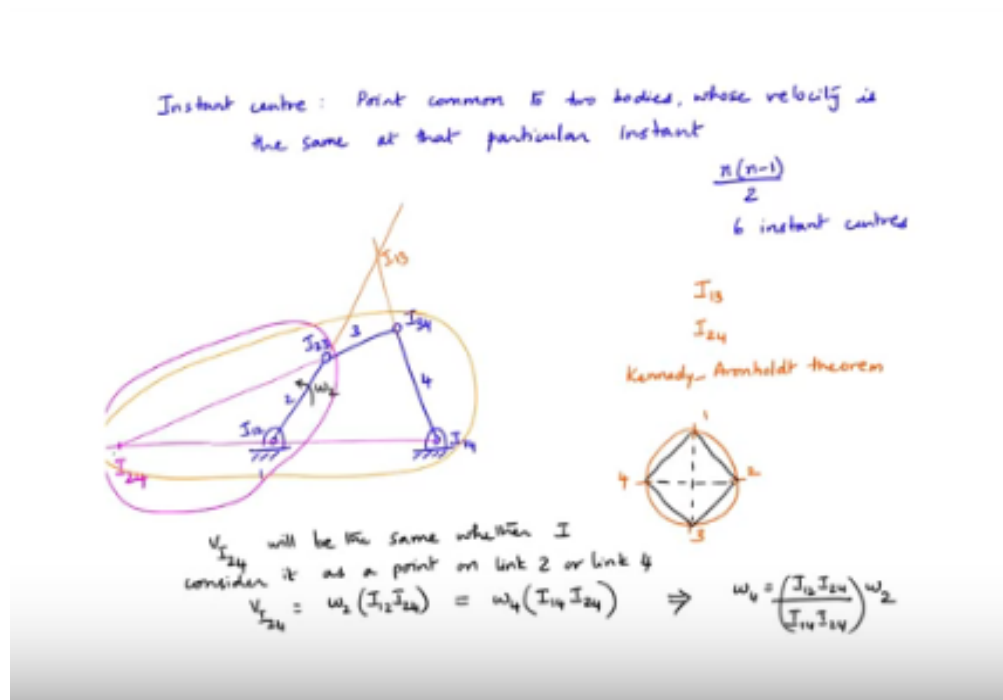 Instant centre : Point common to two bodies, whose velocity is
the same at that particular instant
n(n-1)
2
6 instant centres
I13
I13
I24
Kennedy - Aronholdt theorem
I34
3
I23
4
2
ω2
I12
I14
1
I24
1
4
2
3
VI24 will be the same whether I
consider it as a point on link 2 or link 4
VI24 = ω2 (I12 I24) = ω4 (I14 I24) ⇒ ω4 = (I12 I24 / I14 I24) ω2